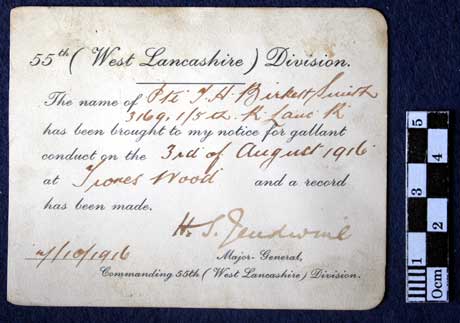 55th (West Lancashire) Division.
The name of Pte T. H. Birkett Smith
3169. 1/5th. R Lanc R
has been brought to my notice for gallant
conduct on the 3rd of August 1916
at Trones Wood and a record
has been made.
H. S. Jeudwine
/10/1916 Major-General,
Commanding 55th (West Lancashire) Division.
0cm 1 2 3 4 5